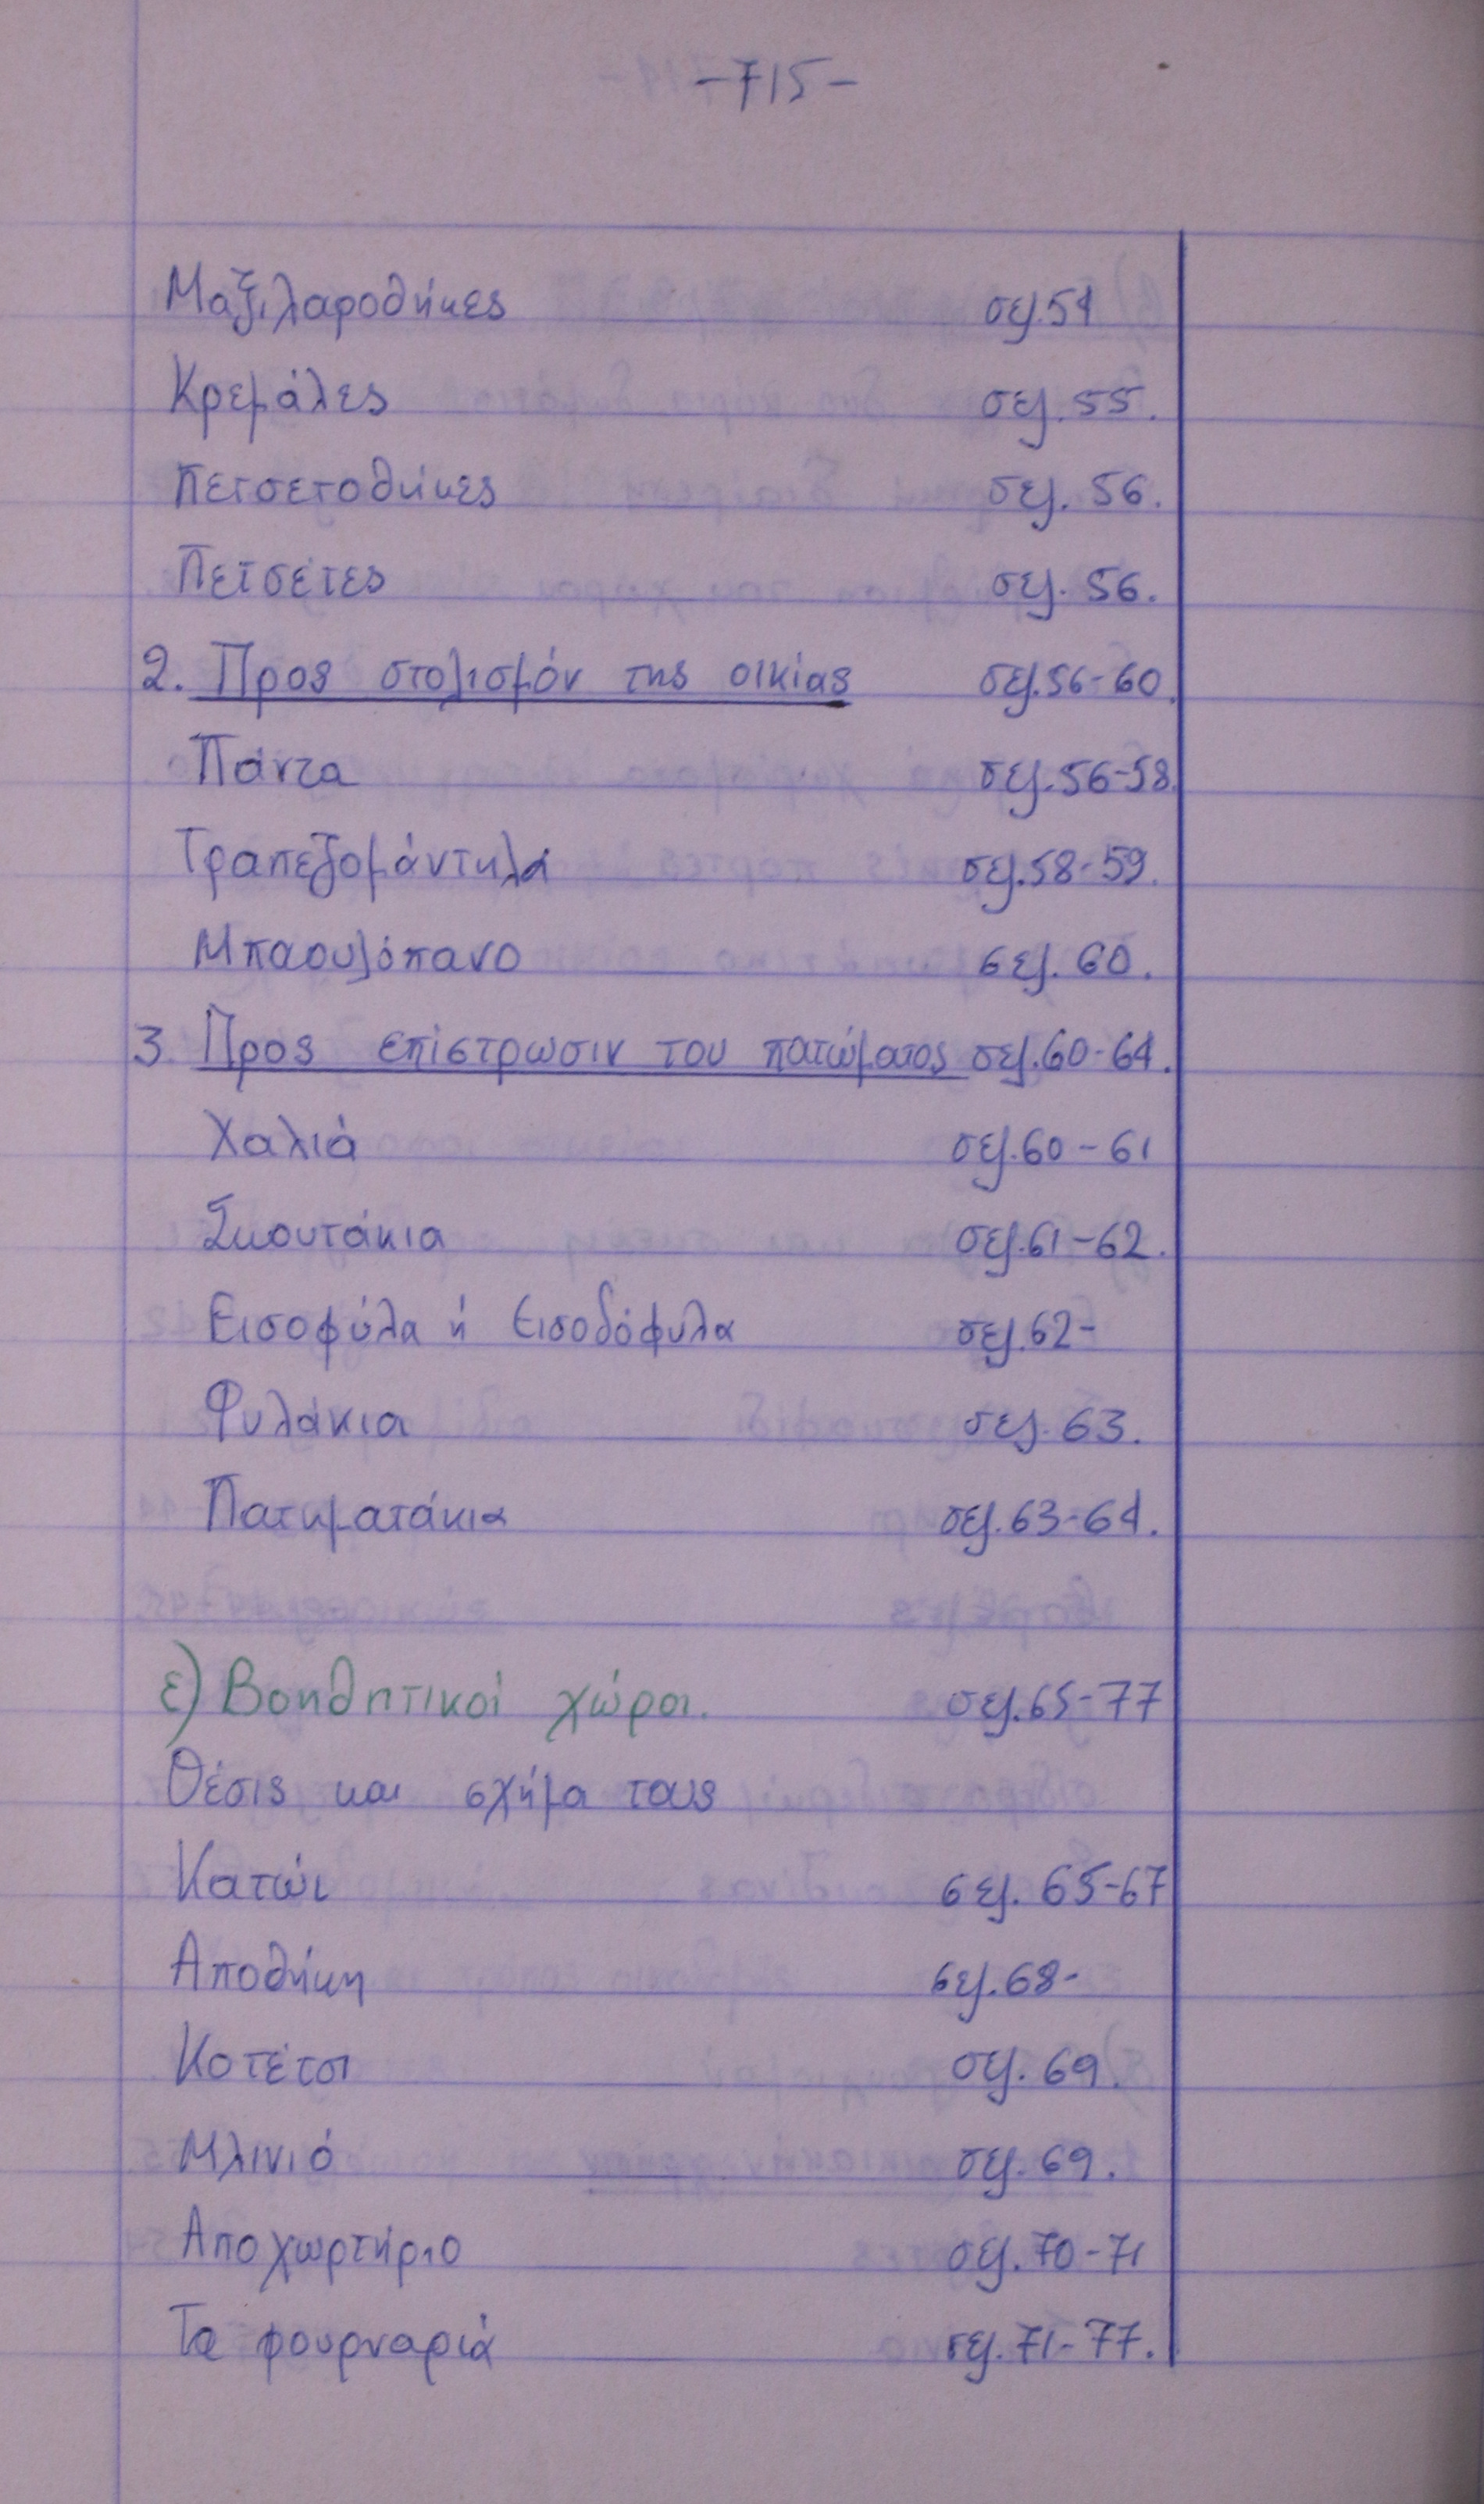 -715-
Μαξιλαροθήκες σελ.54
Κρεμάλες σελ. 55.
Πετσετοθήκες σελ. 56.
Πετσέτες σελ. 56.
2. Προς στολισμόν της οικίας σελ.56-60.
Πάντα σελ.56-58.
Τραπεζομάντηλα σελ.58-59.
Μπαουλόπανο σελ. 60.
3. Προς επίστρωσιν του πατώματος σελ.60-64.
Χαλιά σελ.60-61
Σκουτάκια σελ.61-62.
Εισοφύλα ή Εισοδόφυλα σελ.62-
Φυλάκια σελ. 63.
Πατηματάκια σελ.63-64.
ε) Βοηθητικοί χώροι. σελ.65-77
Θέσις και σχήμα τους
Κατώι σελ. 65-67
Αποθήκη σελ.68-
Κοτέτσι σελ. 69.
Μλινιό σελ.69.
Αποχωρτήριο σελ.70-71
Τα φουρναριά σελ.71-77.